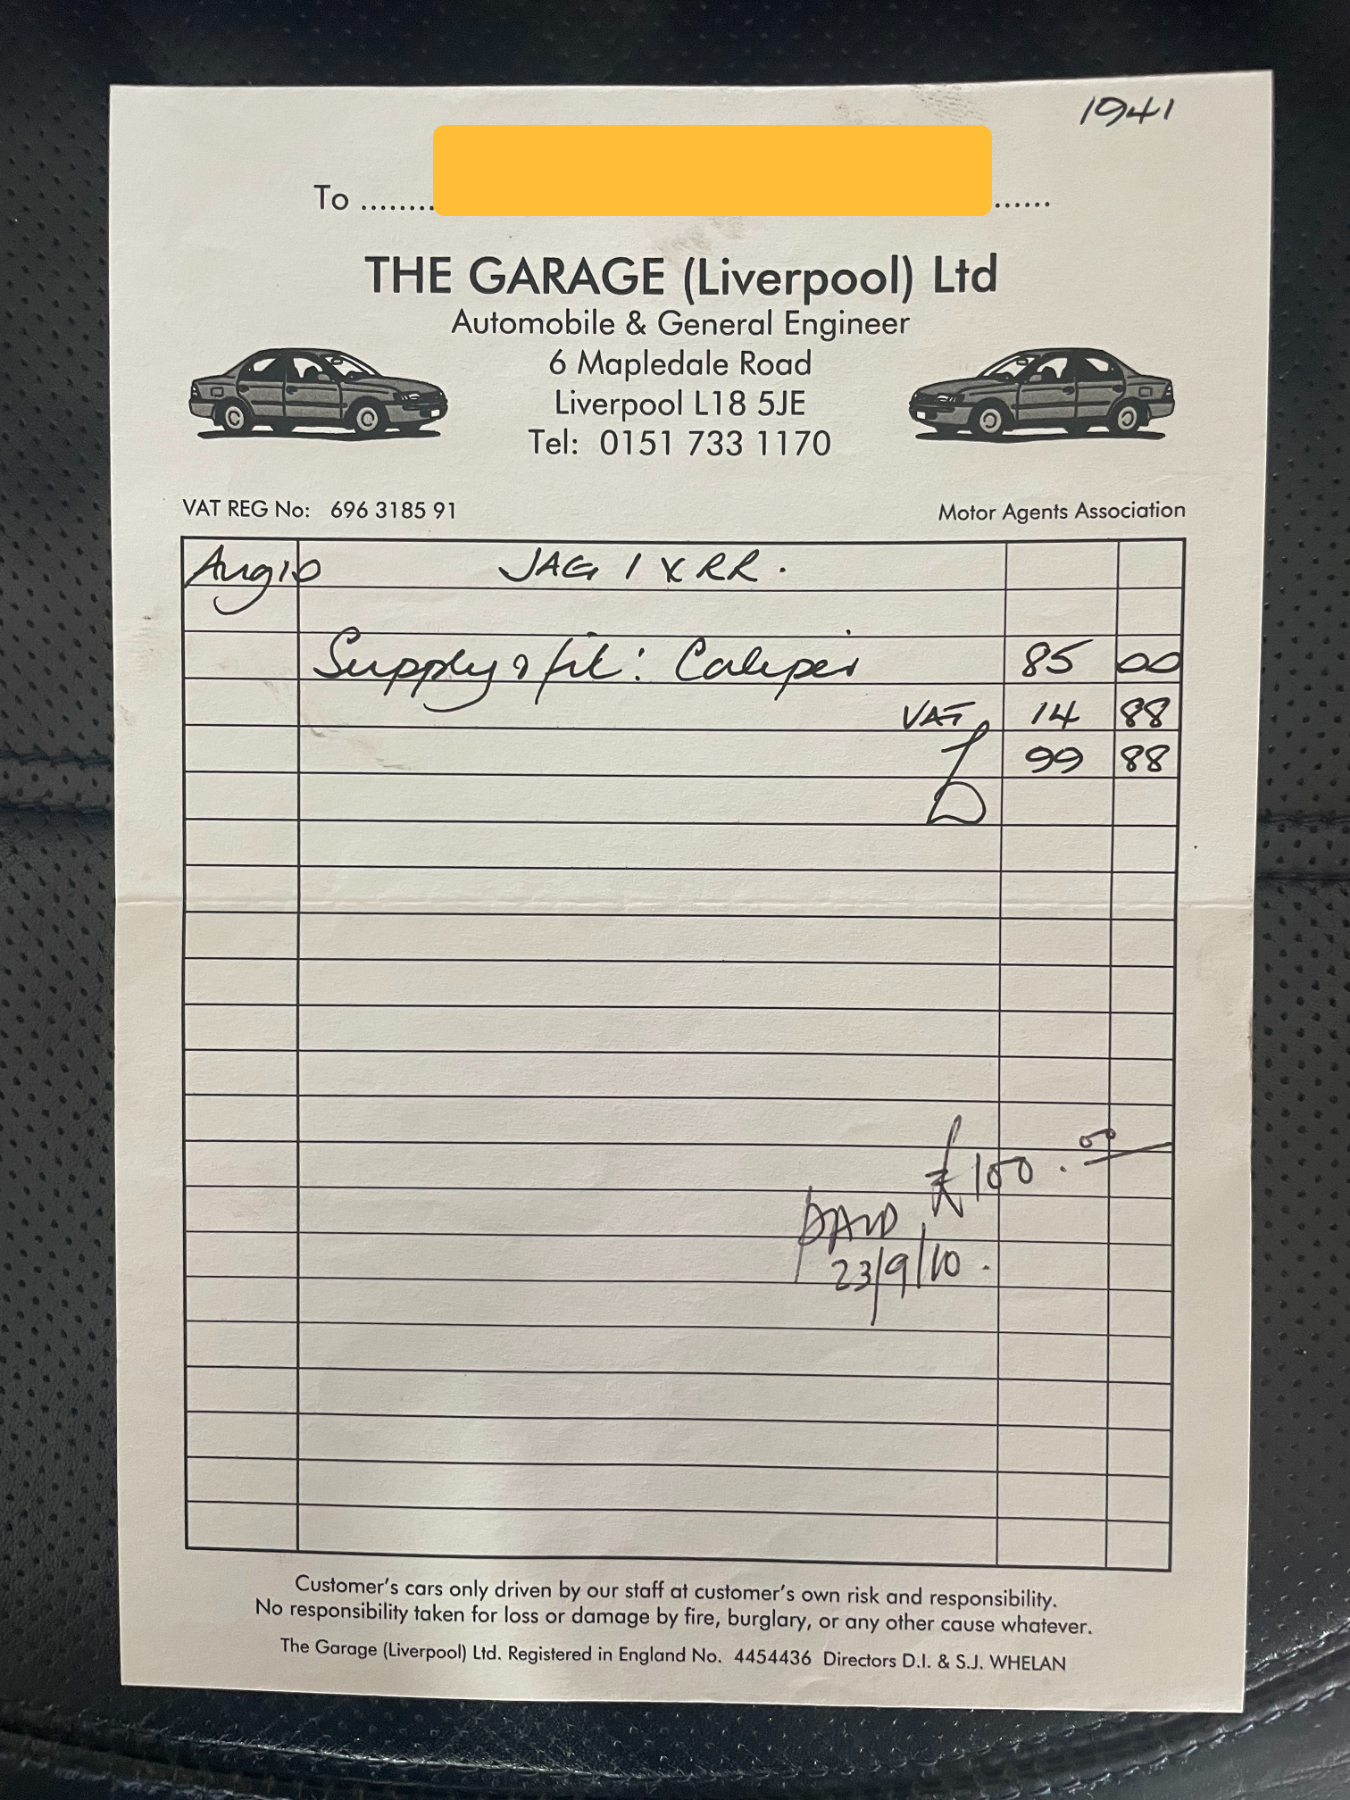 1941
To ............
THE GARAGE (Liverpool) Ltd
Automobile & General Engineer
6 Mapledale Road
Liverpool L18 5JE
Tel: 0151 733 1170
VAT REG No: 696 3185 91 Motor Agents Association
Aug 10 JAG 1 XRR.
Supply & fit: Caliper 85 00
VAT 14 88
99 88
£100.00
PAID
23/9/10.
Customer's cars only driven by our staff at customer's own risk and responsibility.
No responsibility taken for loss or damage by fire, burglary, or any other cause whatever.
The Garage (Liverpool) Ltd. Registered in England No. 4454436 Directors D.I. & S.J. WHELAN